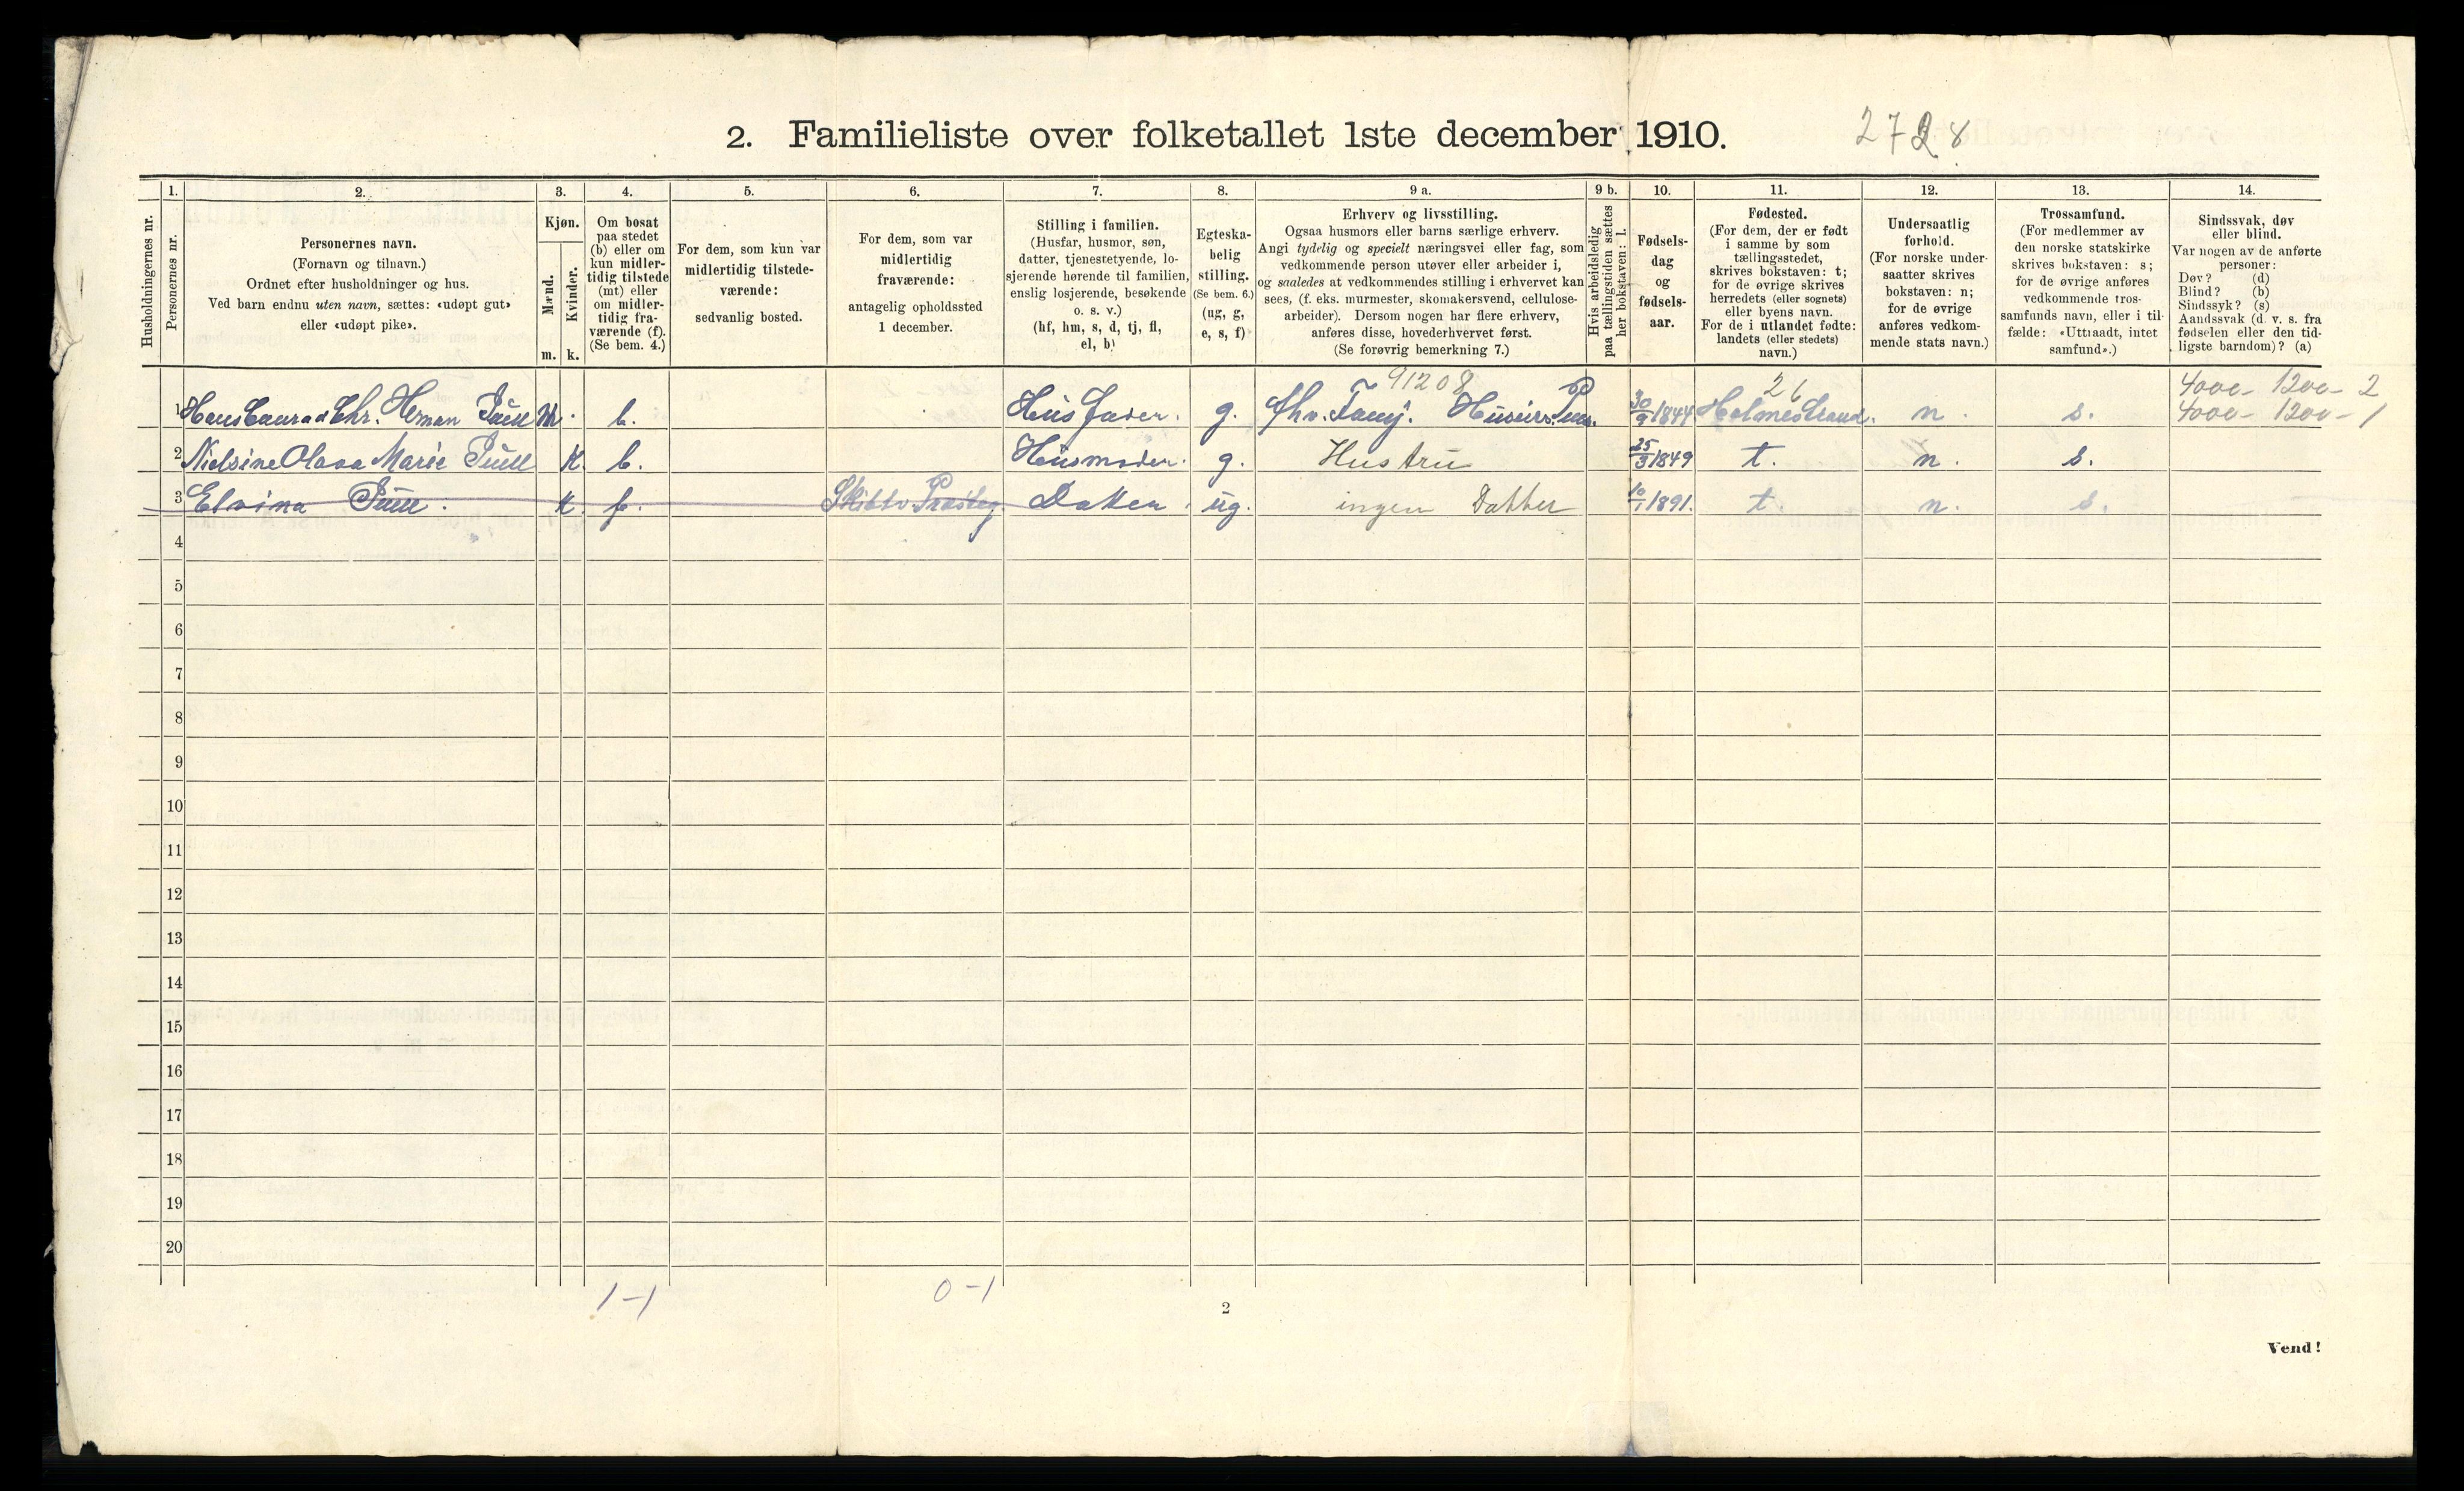 2. Familieliste over folketallet 1ste december 1910.
2728
Husholdningernes nr.
1.
Personernes nr.
2.
Personernes navn.
(Fornavn og tilnavn.)
Ordnet efter husholdninger og hus.
Ved barn endnu uten navn, sættes: «udøpt gut»
eller «udøpt pike».
3.
Kjøn.
Mænd.
Kvinder.
m. k.
4.
Om bosat
paa stedet
(b) eller om
kun midler-
tidig tilstede
(mt) eller
om midler-
tidig fra-
værende (f).
(Se bem. 4.)
5.
For dem, som kun var
midlertidig tilstede-
værende:
sedvanlig bosted.
6.
For dem, som var
midlertidig
fraværende:
antagelig opholdssted
1 december.
7.
Stilling i familien.
(Husfar, husmor, søn,
datter, tjenestetyende, lo-
sjerende hørende til familien,
enslig losjerende, besøkende
o. s. v.)
(hf, hm, s, d, tj, fl,
el, b)
8.
Egteska-
belig
stilling.
(Se bem. 6.)
(ug, g,
e, s, f)
9 a.
Erhverv og livsstilling.
Ogsaa husmors eller barns særlige erhverv.
Angi tydelig og specielt næringsvei eller fag, som
vedkommende person utøver eller arbeider i,
og saaledes at vedkommendes stilling i erhvervet kan
sees, (f. eks. murmester, skomakersvend, cellulose-
arbeider). Dersom nogen har flere erhverv,
anføres disse, hovederhvervet først.
(Se forøvrig bemerkning 7.)
9 b.
Hvis arbeidsledig
paa tællingstiden sættes
her bokstaven: l.
10.
Fødsels-
dag
og
fødsels-
aar.
11.
Fødested.
(For dem, der er født
i samme by som
tællingsstedet,
skrives bokstaven: t;
for de øvrige skrives
herredets (eller sognets)
eller byens navn.
For de i utlandet fødte:
landets (eller stedets)
navn.)
12.
Undersaatlig
forhold.
(For norske under-
saatter skrives
bokstaven: n;
for de øvrige
anføres vedkom-
mende stats navn.)
13.
Trossamfund.
(For medlemmer av
den norske statskirke
skrives bokstaven: s;
for de øvrige anføres
vedkommende tros-
samfunds navn, eller i til-
fælde: «Uttraadt, intet
samfund».)
14.
Sindssvak, døv
eller blind.
Var nogen av de anførte
personer:
Døv? (d)
Blind? (b)
Sindssyk? (s)
Aandssvak (d. v. s. fra
fødselen eller den tid-
ligste barndom)? (a)
91208 26 4000- 1200- 2
1 Hans Conrad Chr. Herman m. b. Hus fader. g. fhv. 30/9 1844 Holmestrand. n. s. 4000- 1200- 1
2 Nielsine Olava Marie K. b. Husmoder. g. Hustru 25/3 1849 t. n. s.
3 Elvina K. f. Datter. ug. ingen Datter 10/1 1891. t. n. s.
4
5
6
7
8
9
10
11
12
13
14
15
16
17
18
19
20
1-1 0-1
2
Vend!